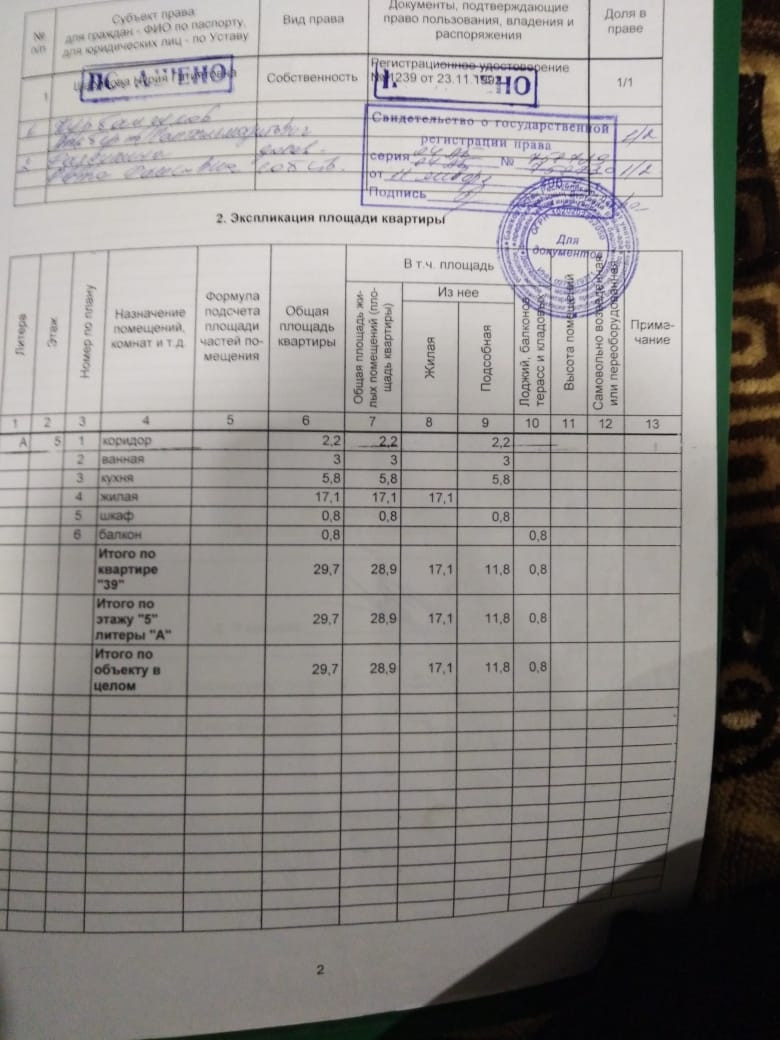 № п/п
Субъект права: для граждан - ФИО по паспорту, для юридических лиц - по Уставу
Вид права
Документы, подтверждающие право пользования, владения и распоряжения
Доля в праве
1 Собственность Регистрационное удостоверение № 1239 от 23.11.199 1/1
Свидетельство о государственной
регистрации права
серия №
от
Подпись
1/2
1/2
2. Экспликация площади квартиры
Литера
Этаж
Номер по плану
Назначение помещений, комнат и т.д.
Формула подсчета площади частей по-мещения
Общая площадь квартиры
В т.ч. площадь
Общая площадь жи-лых помещений (пло-щадь квартиры)
Из нее
Жилая
Подсобная
Лоджий, балконов, терасс и кладовых
Высота помещений
Самовольно возведенная или переоборудованная
Приме-чание
Для
документов
1 2 3 4 5 6 7 8 9 10 11 12 13
А 5 1 коридор 2,2 2,2 2,2
2 ванная 3 3 3
3 кухня 5,8 5,8 5,8
4 жилая 17,1 17,1 17,1
5 шкаф 0,8 0,8 0,8
6 балкон 0,8 0,8
Итого по
квартире 29,7 28,9 17,1 11,8 0,8
"39"
Итого по
этажу "5" 29,7 28,9 17,1 11,8 0,8
литеры "А"
Итого по
объекту в 29,7 28,9 17,1 11,8 0,8
целом
2